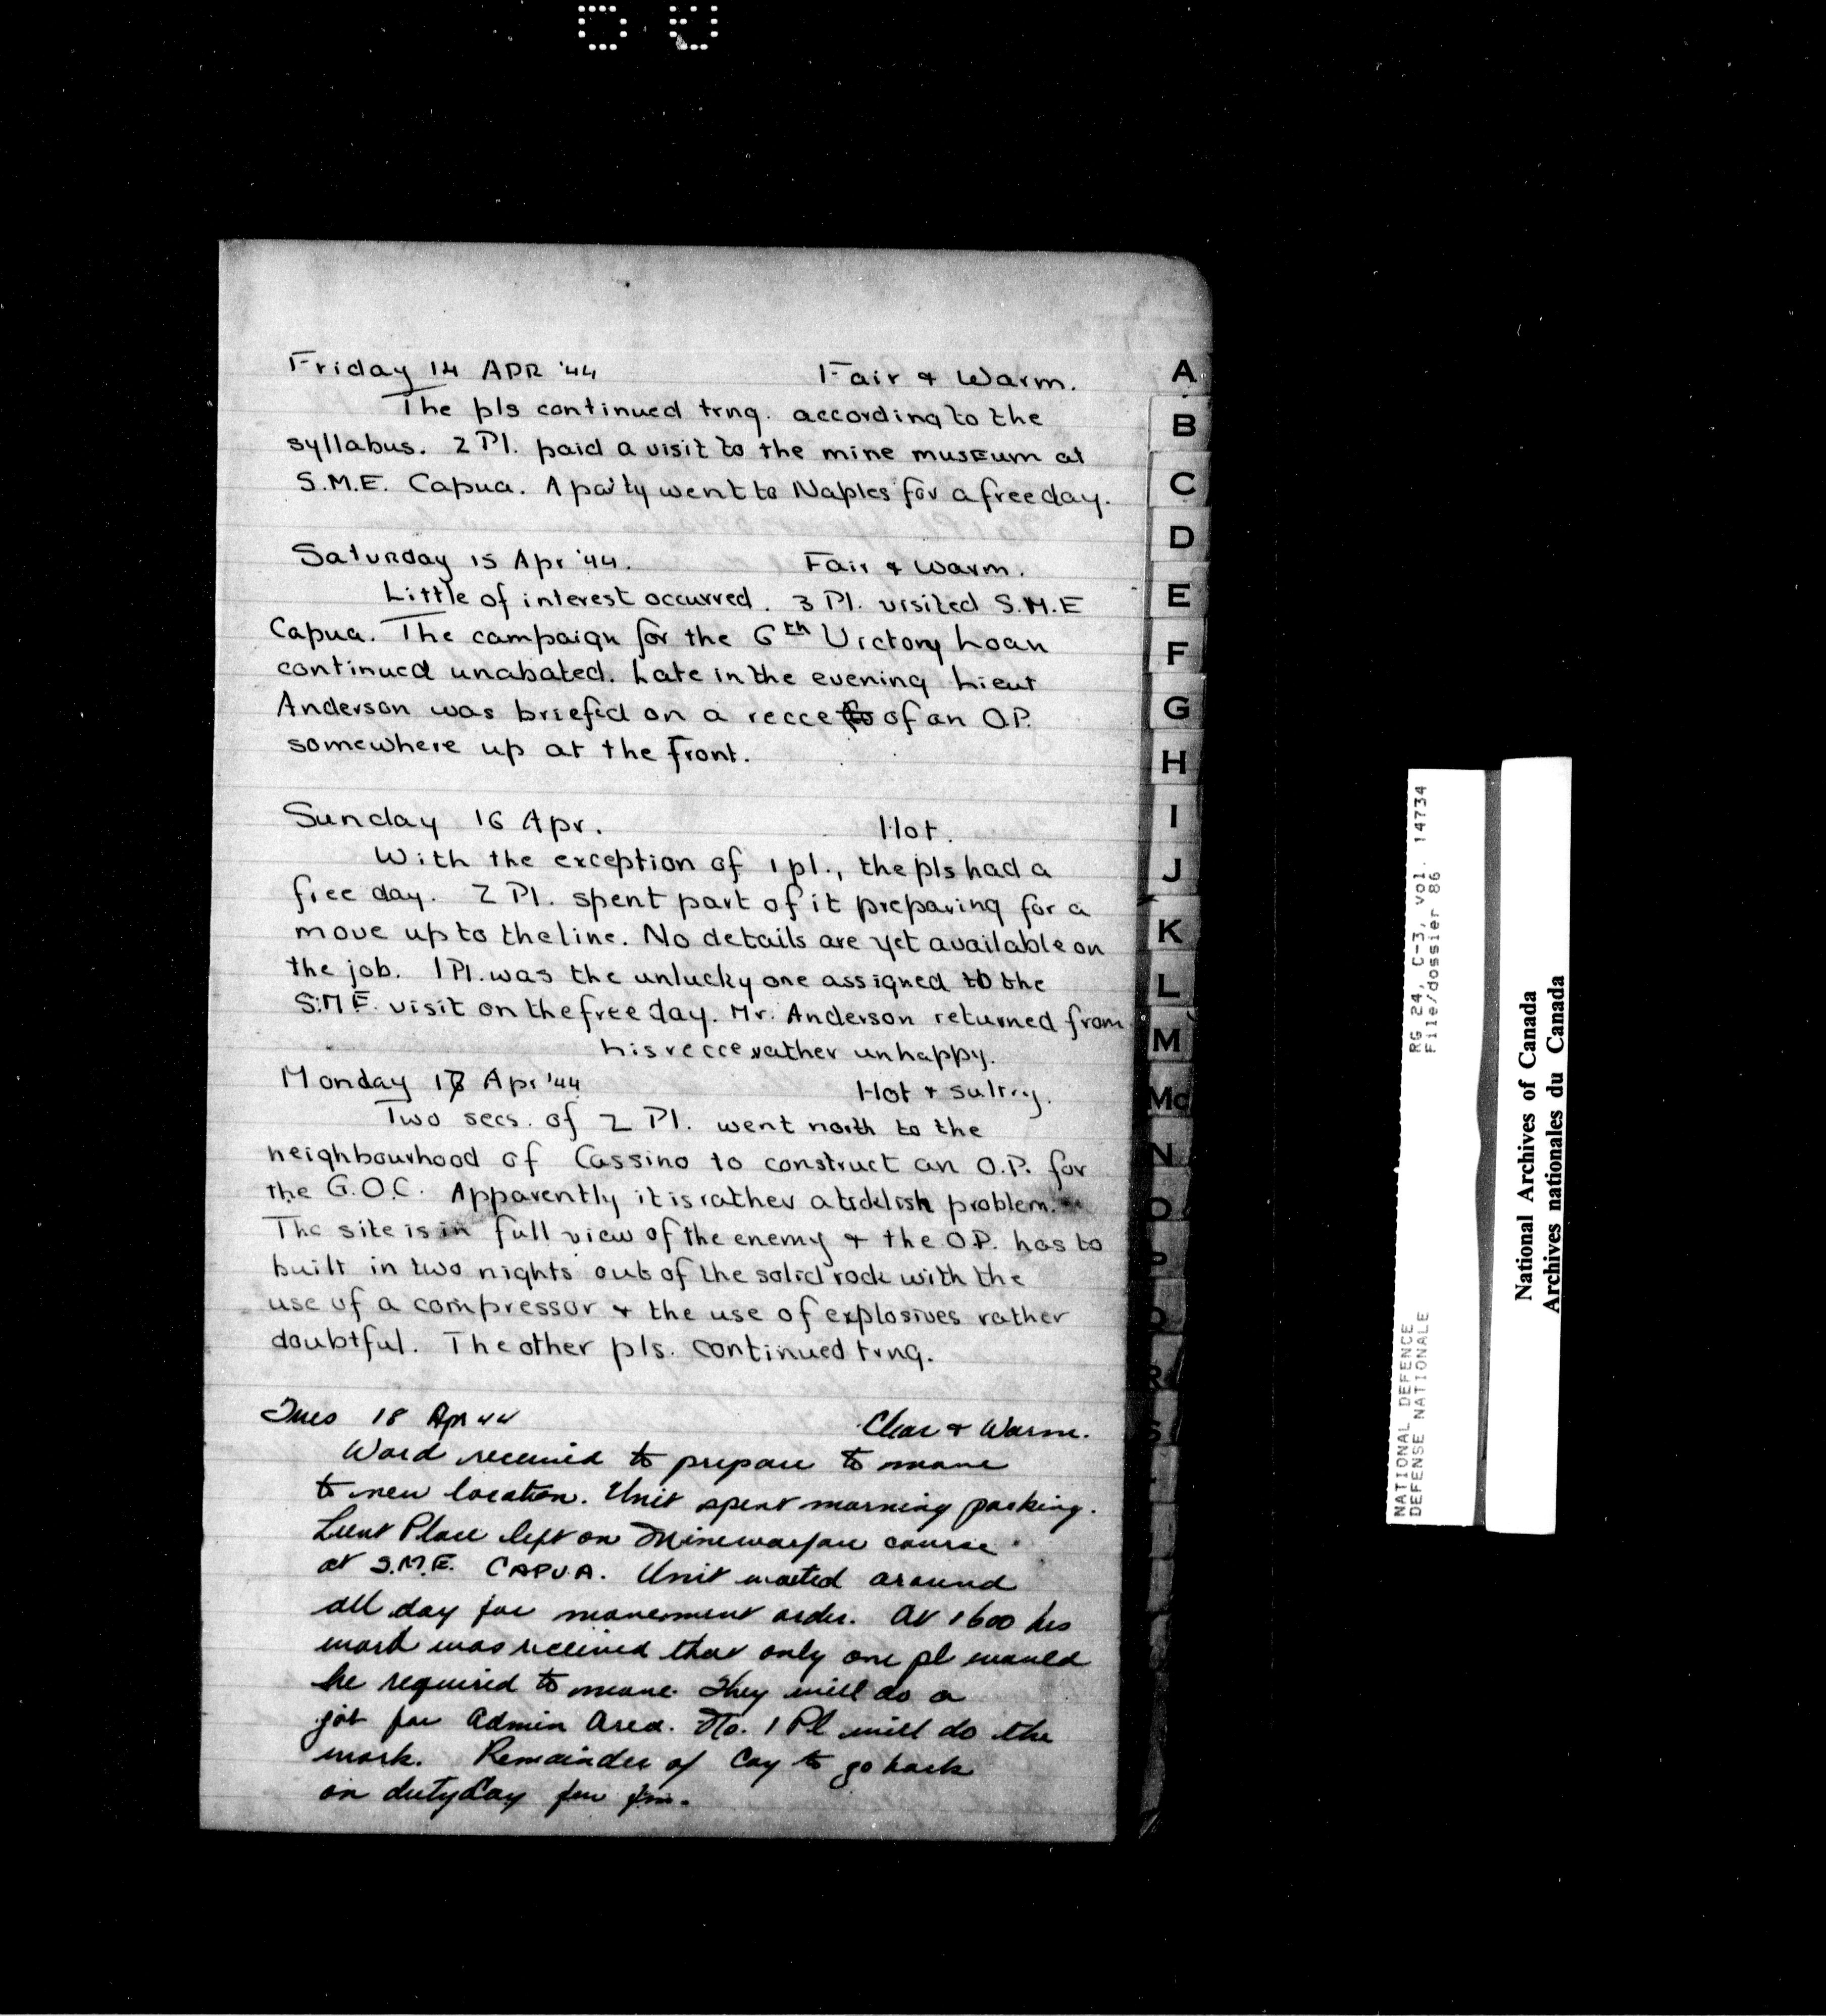 Friday 14 APR '44 Fair & Warm.
The pls continued trng. according to the
syllabus. 2 Pl. paid a visit to the mine musEum at
S.M.E. Capua. A party went to Naples for a free day.
Saturday 15 Apr '44. Fair & warm.
Little of interest occurred. 3 Pl. visited S.M.E
Capua. The campaign for the 6th Victory Loan
continued unabated. Late in the evening Lieut
Anderson was briefed on a recce of an O.P.
somewhere up at the front.
Sunday 16 Apr. Hot.
With the exception of 1 pl., the pls had a
free day. 2 Pl. spent part of it preparing for a
move up to the line. No details are yet available on
the job. 1 Pl. was the unlucky one assigned to the
S.M.E. visit on the free day. Mr. Anderson returned from
his recce rather unhappy.
Monday 17 Apr '44 Hot & sultry.
Two secs. of 2 Pl. went north to the
neighbourhood of Cassino to construct an O.P. for
the G.O.C. Apparently it is rather a ticklish problem.
The site is in full view of the enemy & the O.P. has to
built in two nights out of the solid rock with the
use of a compressor & the use of explosives rather
doubtful. The other pls. continued trng.
Tues 18 Apr 44 Clear & Warm.
Word received to prepare to move
to new location. Unit spent morning packing.
Lieut Place left on Minewarfare course
at S.M.E. CAPUA. Unit waited around
all day for movement order. At 1600 hrs
word was received that only one pl would
be required to move. They will do a
job for Admin Area. No. 1 Pl will do the
work. Remainder of Coy to go back
on duty Coy for
A
B
C
D
E
F
G
H
I
J
K
L
M
Mc
N
O
P
Q
R
S
NATIONAL DEFENCE RG 24, C-3, vol. 14734
DEFENSE NATIONALE File/dossier 86
National Archives of Canada
Archives nationales du Canada